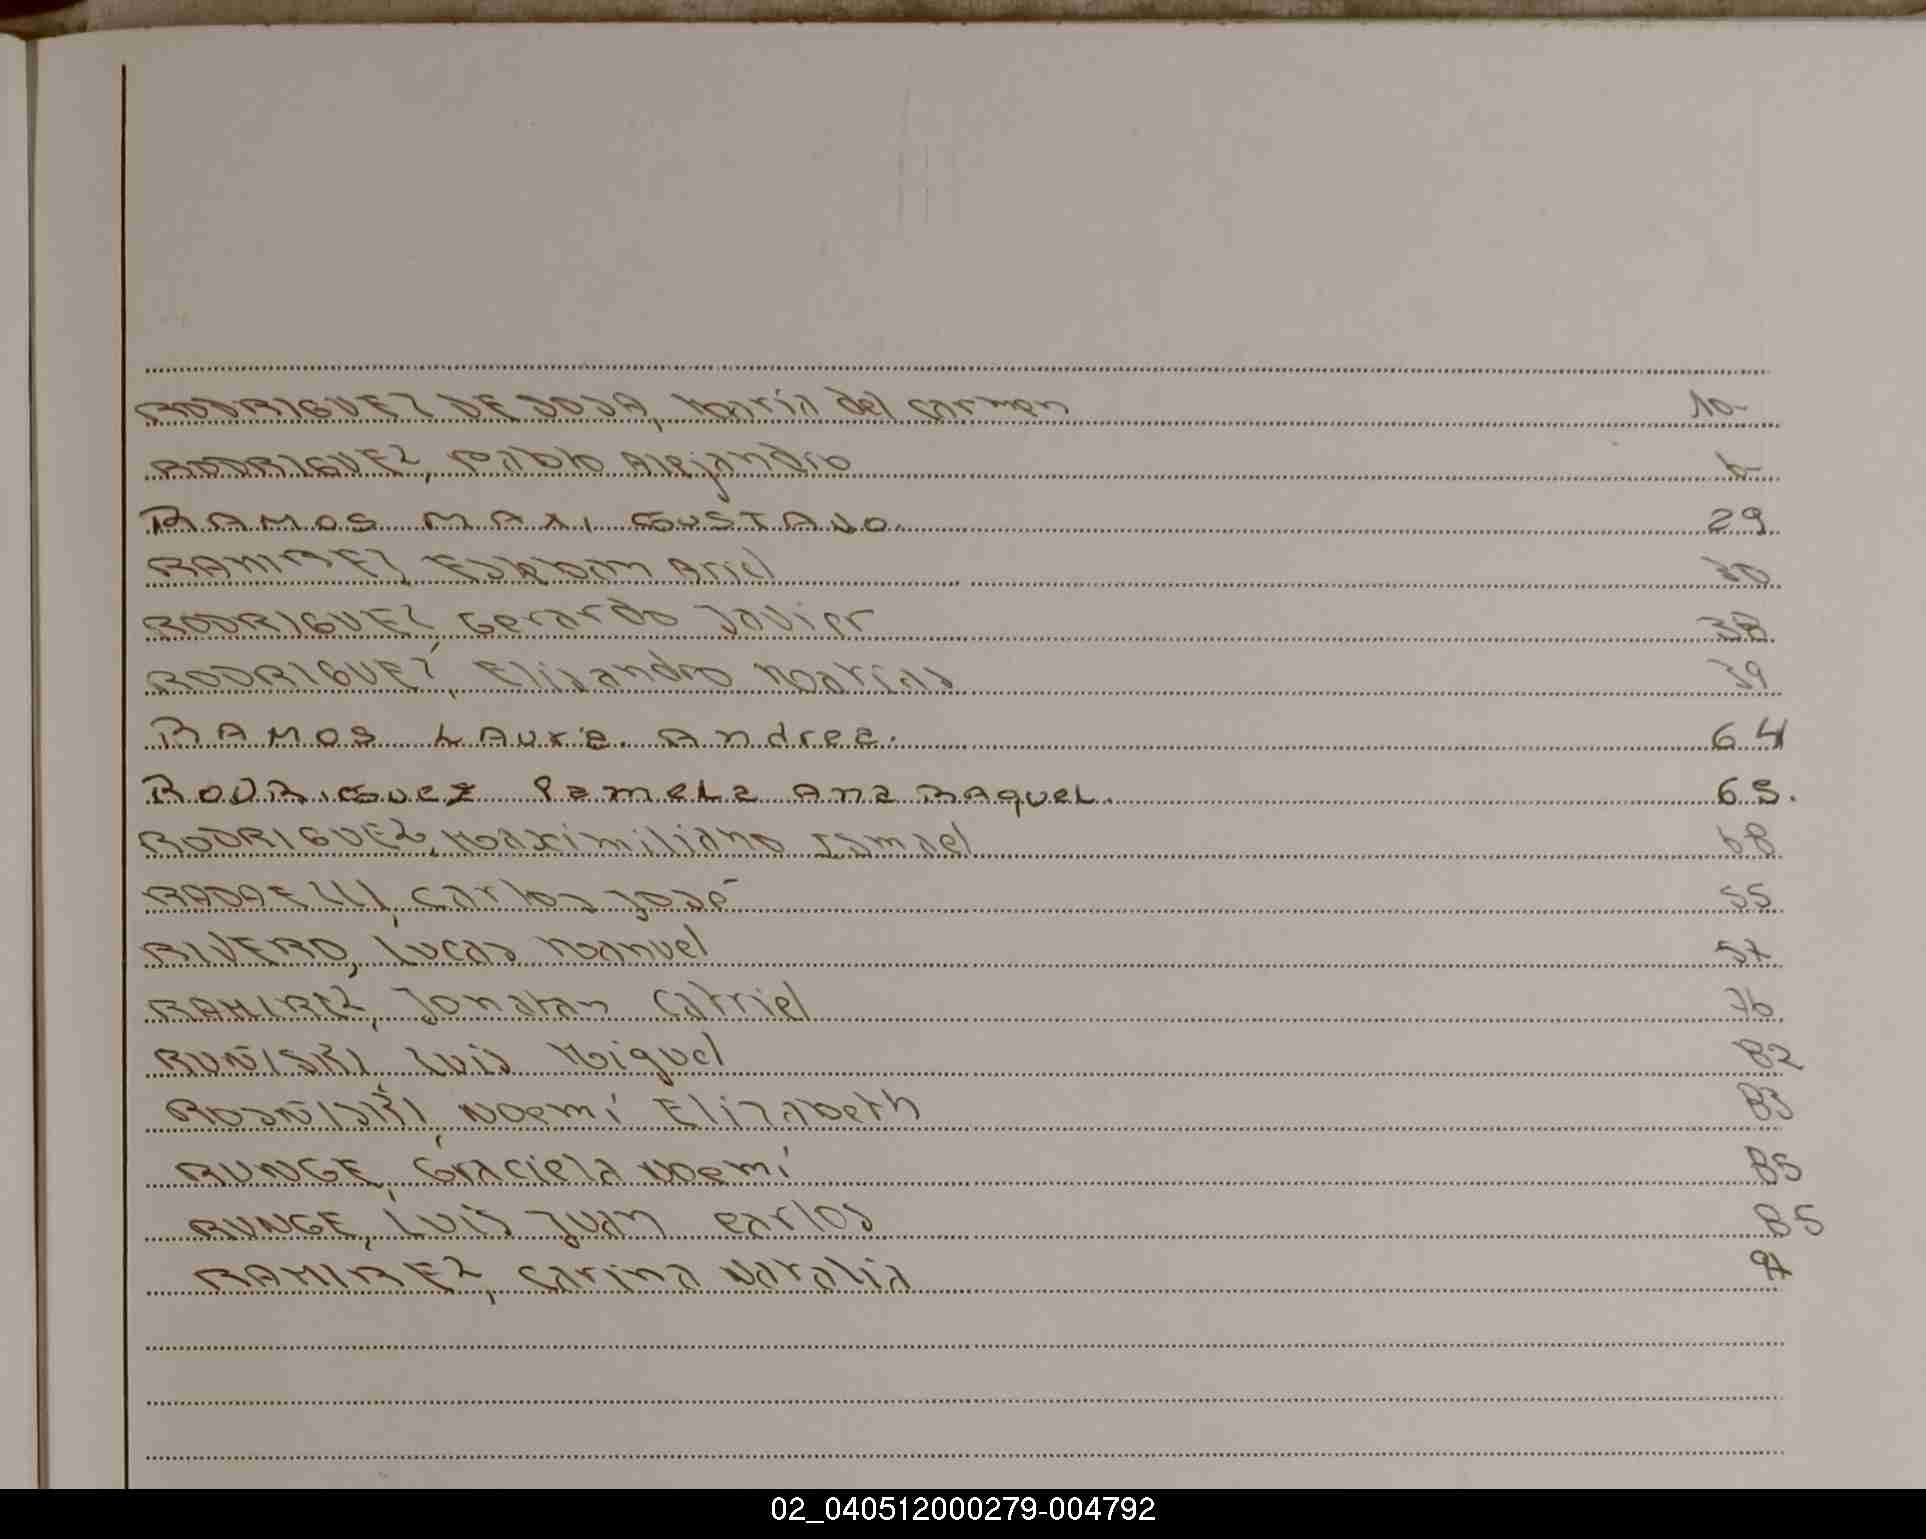 RODRIGUEZ DE SOSA, María del Carmen 10
RODRIGUEZ, Pablo Alejandro
RAMOS MAXI GUSTAVO. 29
RAMIREZ, Esteban Ariel 30
RODRIGUEZ, Gerardo Javier 38
RODRIGUEZ, Elisandro Matías 39
RAMOS LAURA Andrea. 64
RODRIGUEZ Pamela Ana RAquel. 65.
RODRIGUEZ, Maximiliano Ismael 68
RADAELLI, Carlos José 55
RIVERO, Lucas Manuel 57
RAMIREZ, Jonatan Catriel 76
RUÑISKI, Luis Miguel 82
ROSÑISKI, Noemí Elizabeth 83
RUNGE, Graciela Noemí 85
RUNGE, Luis Juan Carlos 85
RAMIREZ, Carina Natalia 97
02_040512000279-004792